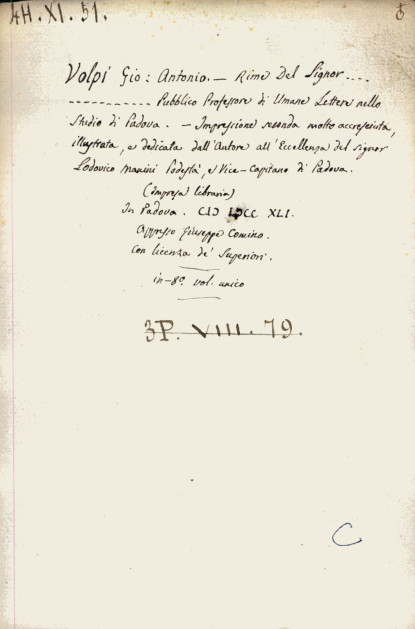 4H. XI. 51.
Volpi Gio: Antonio. — Rime Del Signor ....
------------ Pubblico Professore di Umane Lettere nello
Studio di Padova. — Impressione seconda molto accresciuta,
illustrata, e dedicata dall'Autore all'Eccellenza del Signor
Lodovico Manini Podestà, e Vice-Capitano di Padova.
(Impresa libraria)
In Padova. CIƆ IƆCC XLI.
Appresso Giuseppe Comino.
Con licenza de' Superiori.
in-8º. vol. unico
3P. VIII. 79.
C